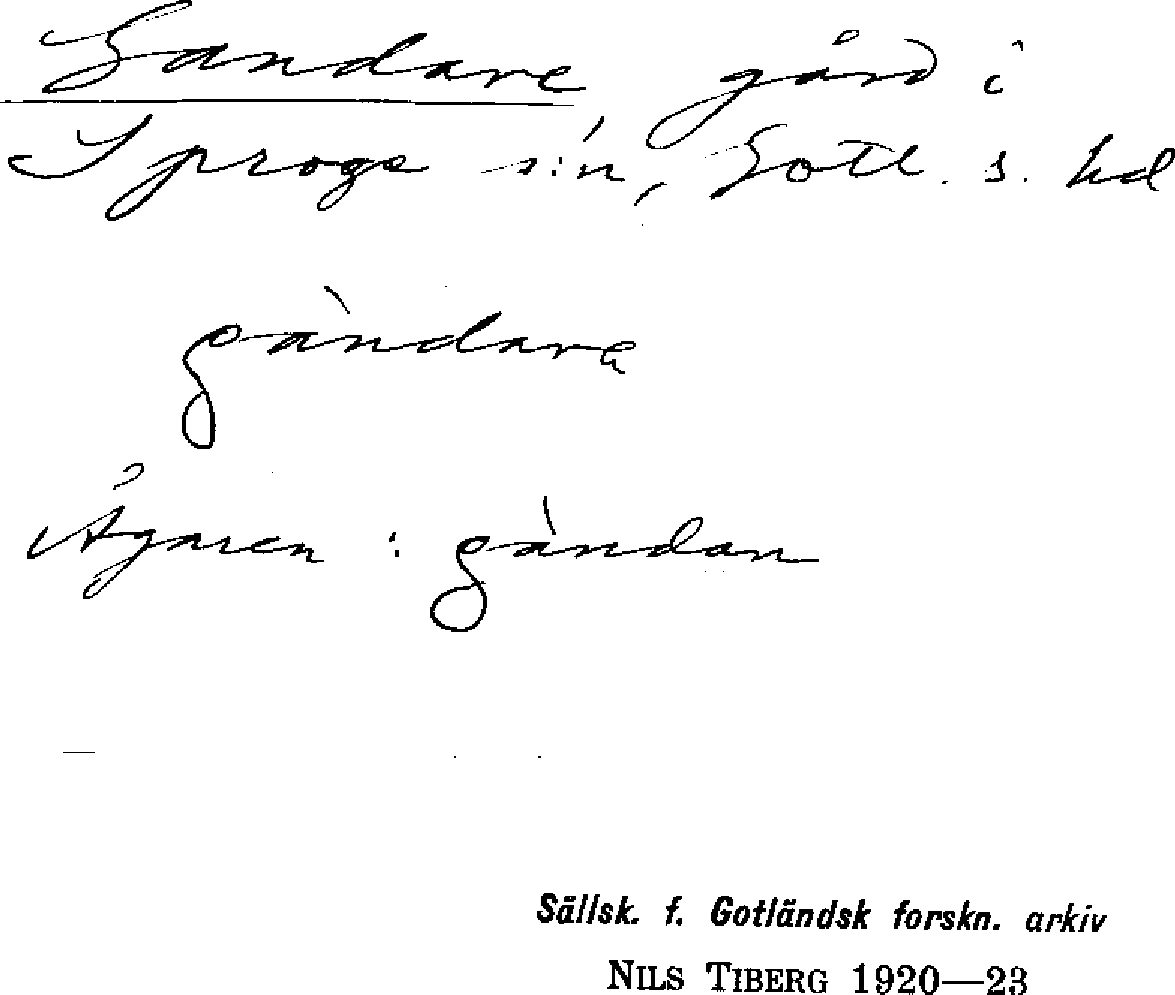 Gandare gård i
Sproge s:n, Gotl. s. hd
gàndare
Ägaren : gàndan
Sällsk. f. Gotländsk forskn. arkiv
NILS TIBERG 1920—23